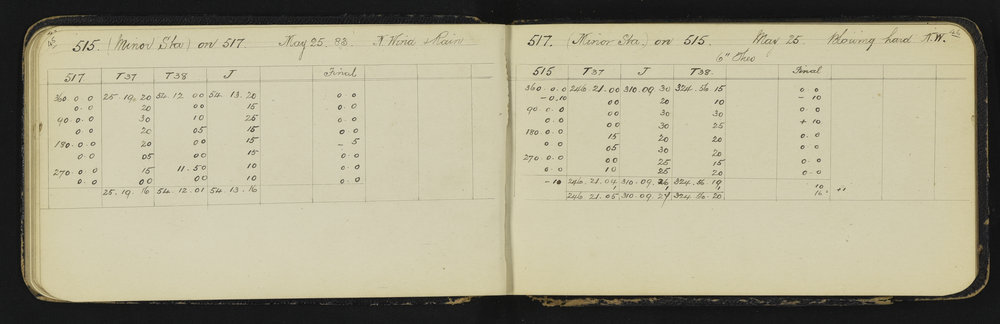 515. (Minor Sta) on 517. May 25. 83. N Wind & Rain
517 T37 T38 J Final
360 0 0 25. 19. 20 54. 12. 00 54. 13. 20 0. 0
0. 0 20 00 15 0. 0
90. 0. 0 30 10 25 0. 0
0. 0 20 05 15 0. 0
180. 0. 0 20 00 15 - 5
0. 0 05 00 15 0. 0
270. 0. 0 15 11. 50 10 0. 0
0. 0 00 00 10 0. 0
25. 19. 16 54. 12. 01 54. 13. 16
46
517. (Minor Sta.) on 515. May 25. Blowing hard N.W.
6" Theo
515 T37 J T38. Final
360. 0. 0 246. 21. 00 310. 09. 30 324. 56. 15 0 0
- 0. 10 00 20 10 - 10
90. 0. 0 00 30 30 0 0
0. 0 00 30 25 + 10
180. 0. 0 15 20 20 0. 0
0. 0 05 30 20 0. 0
270. 0. 0 00 25 15 0. 0
0. 0 10 25 20 0. 0
- 10 246. 21. 04 310. 09. 26 324. 56. 19 10
246. 21. 05 310. 09. 27 324. 56. 20 16 +1